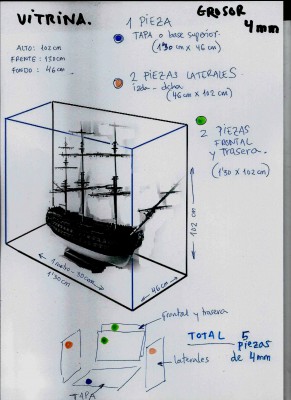 VITRINA.
GROSOR
4mm
ALTO: 102cm
FRENTE: 130cm
FONDO: 46cm
1 PIEZA
TAPA o base superior.
(1'30 cm x 46 cm)
2 PIEZAS LATERALES.
izda - dcha
(46 cm x 102 cm)
2 PIEZAS
FRONTAL
y trasera.
(1'30 x 102cm)
102 cm
1 metro - 30cm
1'30cm
46 cm
frontal y trasera
TOTAL 5
piezas
de 4mm
laterales
TAPA